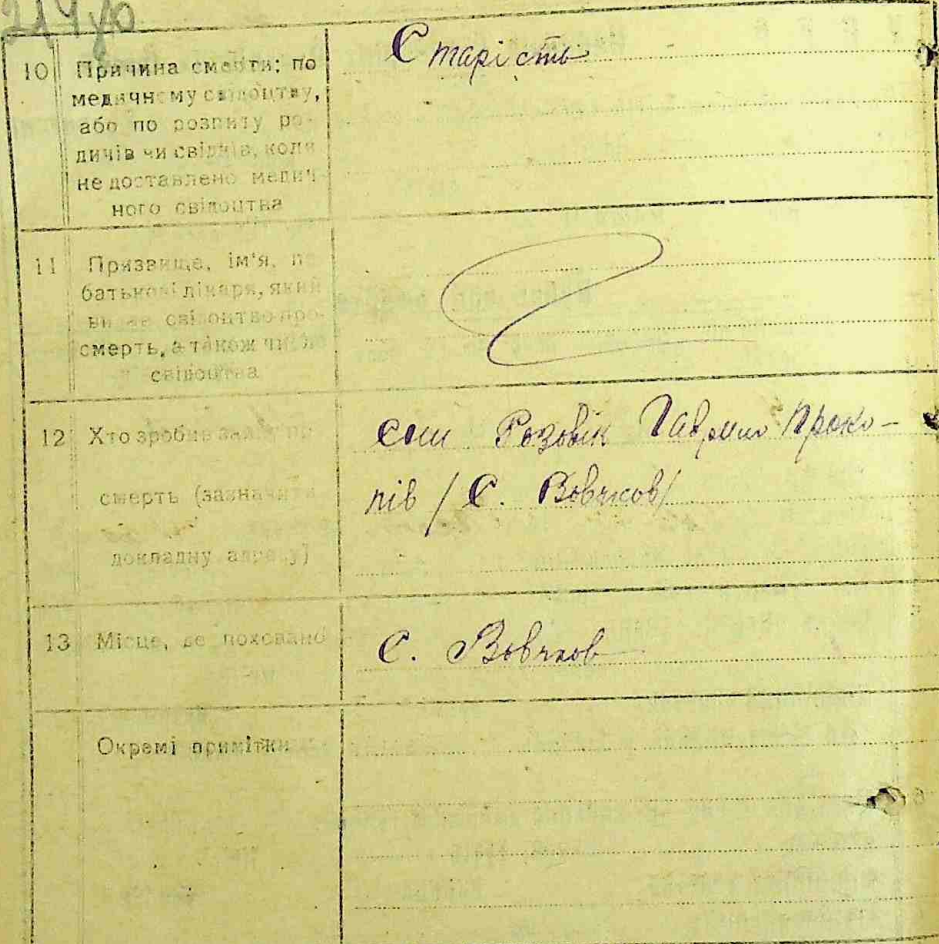 10 Причина смерти: по
медичному свідоцтву,
або по розпиту ро-
дичів чи свідків, коли
не доставлено медич-
ного свідоцтва
Старість
11 Прізвище, ім'я, по
батькові лікаря, який
видав свідоцтво про
смерть, а також число
свідоцтва
12 Хто зробив заяву про
смерть (зазначити
докладну адресу)
син Розовік Гаврило Проко-
пів / С. Вовчков/
13 Місце, де поховано
С. Вовчков
Окремі примітки